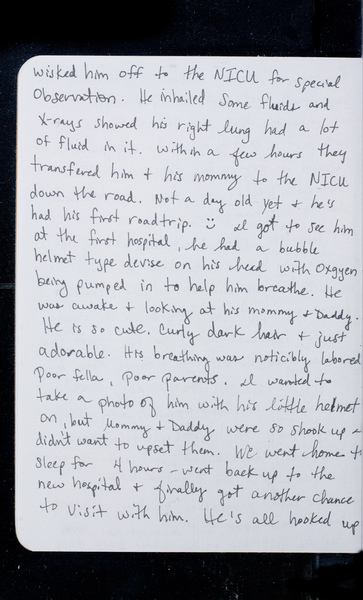 wisked him off to the NICU for special
Observation. He inhailed some fluids and
X-rays showed his right lung had a lot
of fluid in it. within a few hours they
transfered him + his mommy to the NICU
down the road. Not a day old yet + he's
had his first roadtrip. ☺ I got to see him
at the first hospital, he had a bubble
helmet type devise on his head with Oxgyen
being pumped in to help him breathe. He
was awake + looking at his mommy + Daddy.
He is so cute. Curly dark hair + just
adorable. His breathing was noticibly labored
Poor fella, poor parents. I wanted to
take a photo of him with his little helmet
on, but Mommy + Daddy were so shook up
didn't want to upset them. We went home
Sleep for 4 hours - went back up to the
new hospital + finally got another chance
to visit with him. He's all hooked up